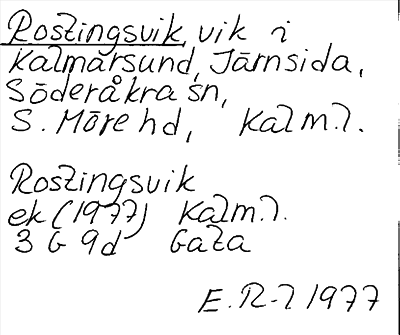 Roszingsvik, vik i
Kalmarsund, Järnsida,
Söderåkra sn,
S. Möre hd, Kalm.l.
Roszingsvik
ek (1977) Kalm.l.
3 G 9d Gata
E.R-l 1977